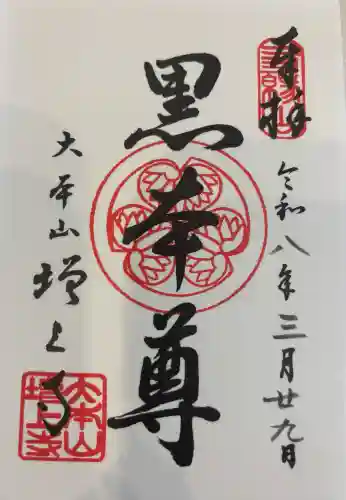 奉拝
令和八年三月廿九日
黒本尊
大本山
増上寺
大本山
増上寺